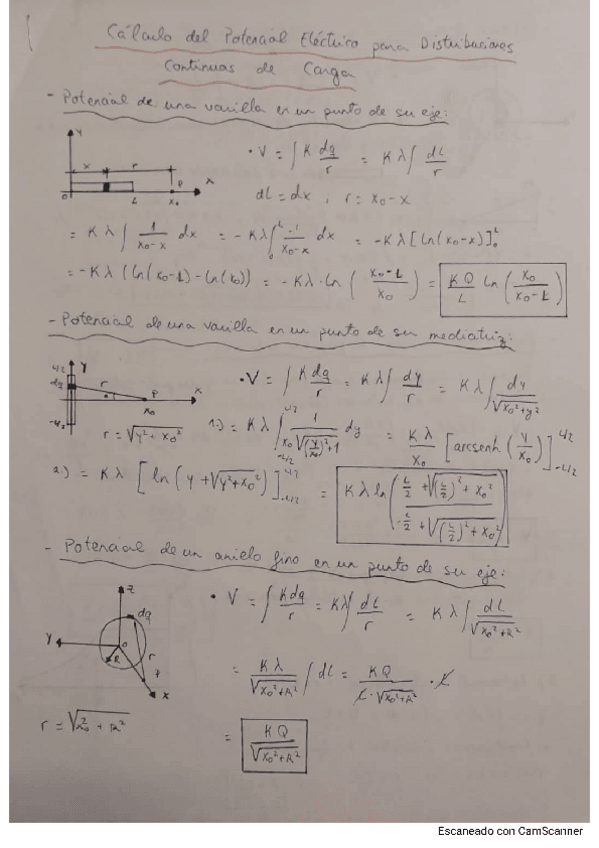 1
Cálculo del Potencial Eléctrico para Distribuciones
Continuas de Carga
- Potencial de una varilla en un punto de su eje:
y
x r
P
0 L x₀ x
• V = ∫ K dq/r = K λ ∫ dL/r
dL = dx , r = x₀ - x
= K λ ∫ 1/(x₀-x) dx = - K λ ∫₀ᴸ -1/(x₀-x) dx = - K λ [ln(x₀-x)]₀ᴸ
= - K λ (ln(x₀-L) - ln(x₀)) = - K λ · ln ( (x₀-L)/x₀ ) = KQ/L ln ( x₀/(x₀-L) )
- Potencial de una varilla en un punto de su mediatriz:
L/2 y
dq r P x
x₀
-L/2
r = √(y² + x₀²)
• V = ∫ K dq/r = K λ ∫ dy/r = K λ ∫ dy/√(x₀²+y²)
1.) = K λ ∫ 1/(x₀ √((y/x₀)²+1)) dy = K λ/x₀ [arcsenh (y/x₀)]
L/2
-L/2
2.) = K λ [ln (y + √(y²+x₀²))] = K λ ln ( (L/2 + √((L/2)² + x₀²)) / (-L/2 + √((L/2)² + x₀²)) )
L/2
-L/2
- Potencial de un anillo fino en un punto de su eje:
z
dq
y 0 r
R P
x
r = √(x₀² + R²)
• V = ∫ K dq/r = K λ ∫ dL/r = K λ ∫ dL/√(x₀²+R²)
= K λ/√(x₀²+R²) ∫ dL = KQ/(L · √(x₀²+R²)) · L
= KQ/√(x₀²+R²)
Escaneado con CamScanner